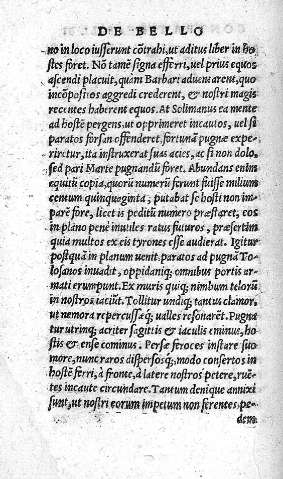 DE BELLO
no in loco iusserunt cōtrahi, ut aditus liber in ho
stes foret. Nō tamē signa efferri, uel prius equos
ascendi placuit, quàm Barbari aduentarent, quo
incōpositos aggredi crederent, & nostri magis
recentes haberent equos. At Solimanus ea mente
ad hostē pergens, ut opprimeret incautos, uel si
paratos forsan offenderet, fortunā pugnæ expe-
riretur, ita instruxerat suas acies, ac si non dolo,
sed pari Marte pugnandū foret. Abundans enim
equitū copia, quorū numerū ferunt fuisse milium
centum quinquaginta, putabat se hosti non im-
parē fore, licet is peditū numero præstaret, eos
in plano penè inutiles ratus futuros, præsertim
quia multos ex eis tyrones esse audierat. Igitur
postquā in planum uenit, paratos ad pugnā To-
losanos inuadit, oppidaniq; omnibus portis ar-
mati erumpunt. Ex muris quoq; nimbum telorū
in nostros iaciūt. Tollitur undiq; tantus clamor,
ut nemora repercussæq; ualles resonarēt. Pugna
tur utrimq; acriter sagittis & iaculis eminus, ho-
stis & ense cominus. Persæ feroces instare suo
more, nunc raros dispersosq;, modo consertos in
hostē ferri, à fronte, à latere nostros petere, ruē-
tes incaute circundare. Tantum denique annixi
sunt, ut nostri eorum impetum non ferentes, pe-
dem